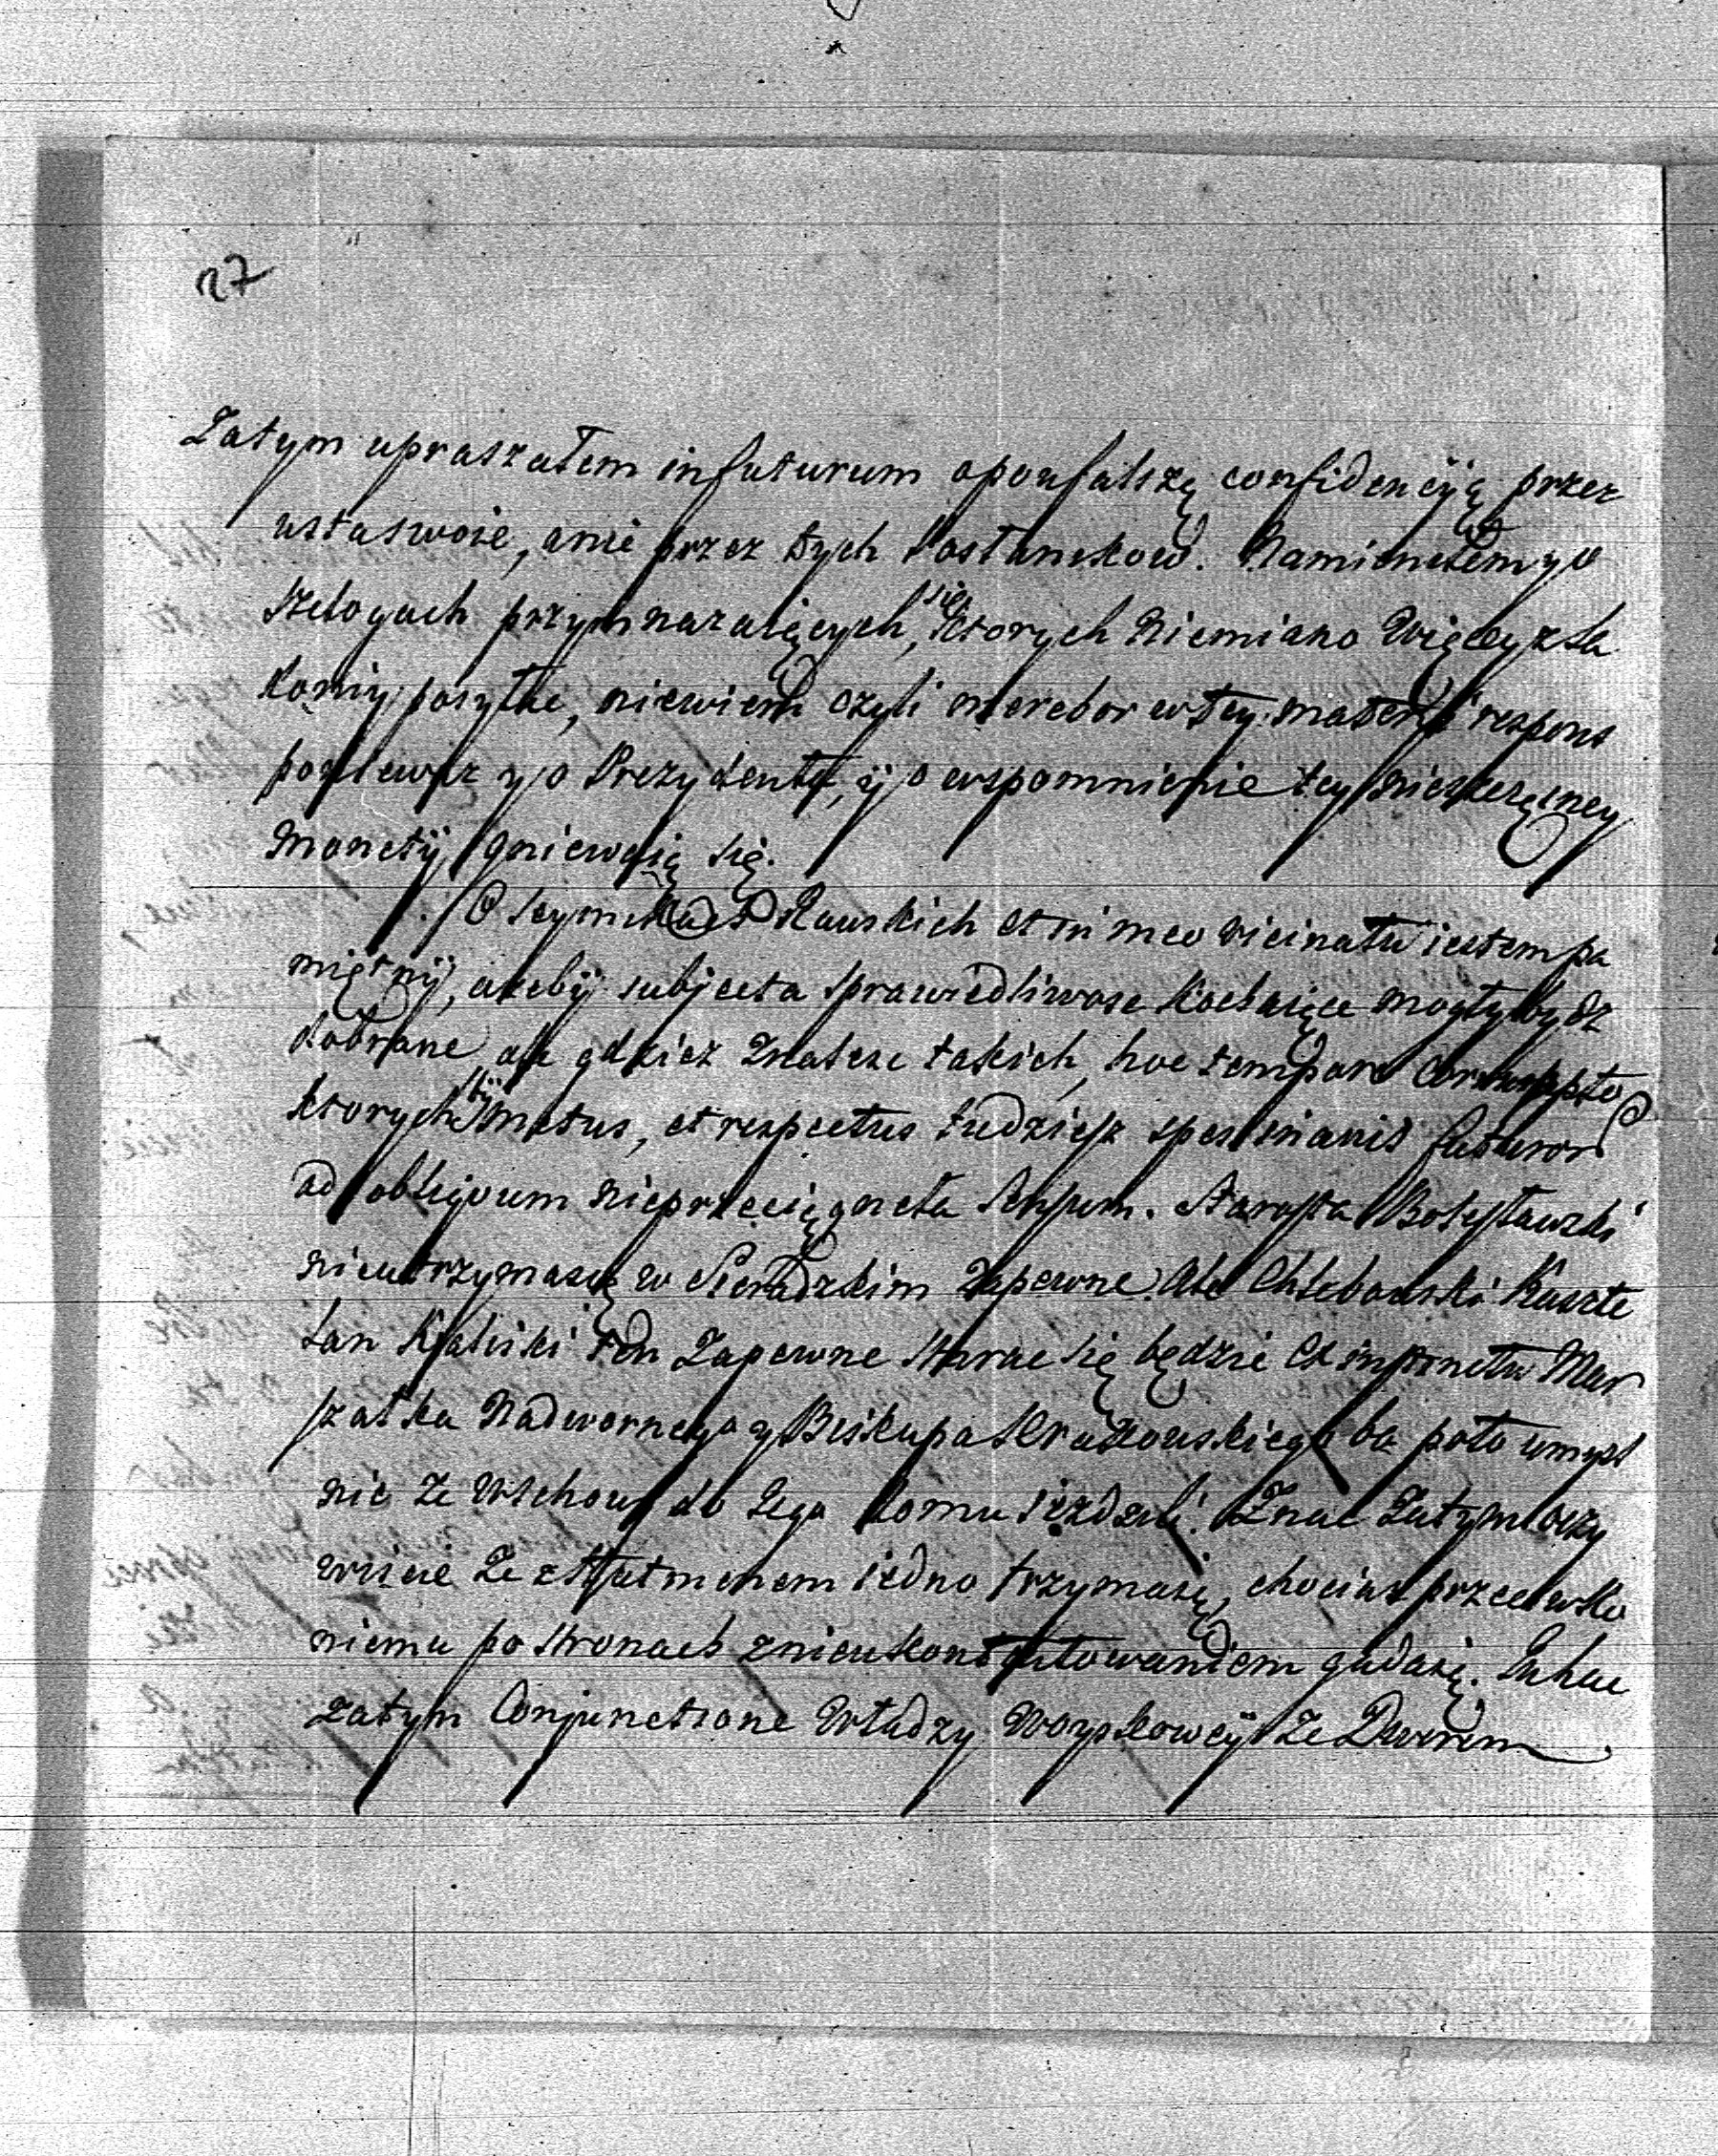 27
Zatym upraszałem in futurum opoufalszą confidencÿą przez
usta swoie, anie przez tych Posłanckow. Namieniłem y o
szelogach przymnazaiących się, ktorych niemiano więcey z Ła
komiy posyłke, niewiem czyli merebor wtey materÿi respons
poniewaz y o Prezydenta, ÿ o wspomnienie tey nieszczęsney
monetÿ gniewaią się.
O Seymikach Rawskich et in meo vicinatu iestem pa
miętnÿ, azebÿ subjecta sprawiedliwosc kochaiące mogły bydz
dobrane, ale gdziez znalesc takich, hoc tempore corrupto
ktorych bÿ metus, et respectus tudziesz spes inanis futuror
ad obliquum nieprzeciągneła sensum. Starosta Bolesławski
nieutrzyma się w Sieradzkim zapewne. Ale Chlebowski Kaszte
lan Kaliski ten zapewne starac się będzie ex instinctu Mar
szałka Nadwornego y Biskupa Krakowskiego bo poto umysl
nie ze Wschowy do tego domu iezdzili. Znac zatym oczy
wiscie ze z Hetmanem iedno trzymaią, chociaz przeciwko
niemu po stronach znieukontentowaniem gadaią. In hac
zatym Conjunctione Władzy Woyskowey ze Dworem